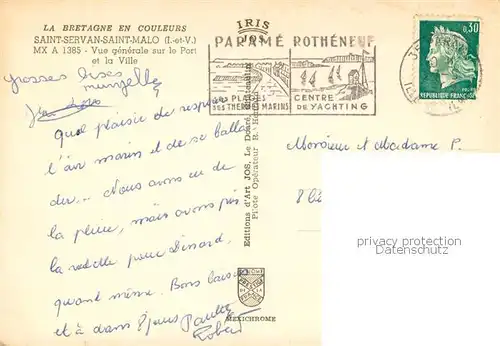 LA BRETAGNE EN COULEURS
SAINT-SERVAN-SAINT-MALO (I.-et-V.)
MX A 1385 - Vue générale sur le Port
et la Ville
IRIS
PARAMÉ ROTHÉNEUF
SES PLAGES
SES THERMES MARINS
CENTRE
DE YACHTING
0,30
REPUBLIQUE FRANÇAISE
Grosses bises
Quel plaisir de respirer
l'air marin et de se balla
der... Nous avons eu de
la pluie, mais avons pris
la vedette pour Dinard,
quand même. Bons baisers
et à dans 8 jours Paulette
Robert
Editions d'Art JOS, Le Doaré, Châteaulin
Pilote Opérateur R.
MEXICHROME
Monsieur et Madame P.
privacy protection
Datenschutz